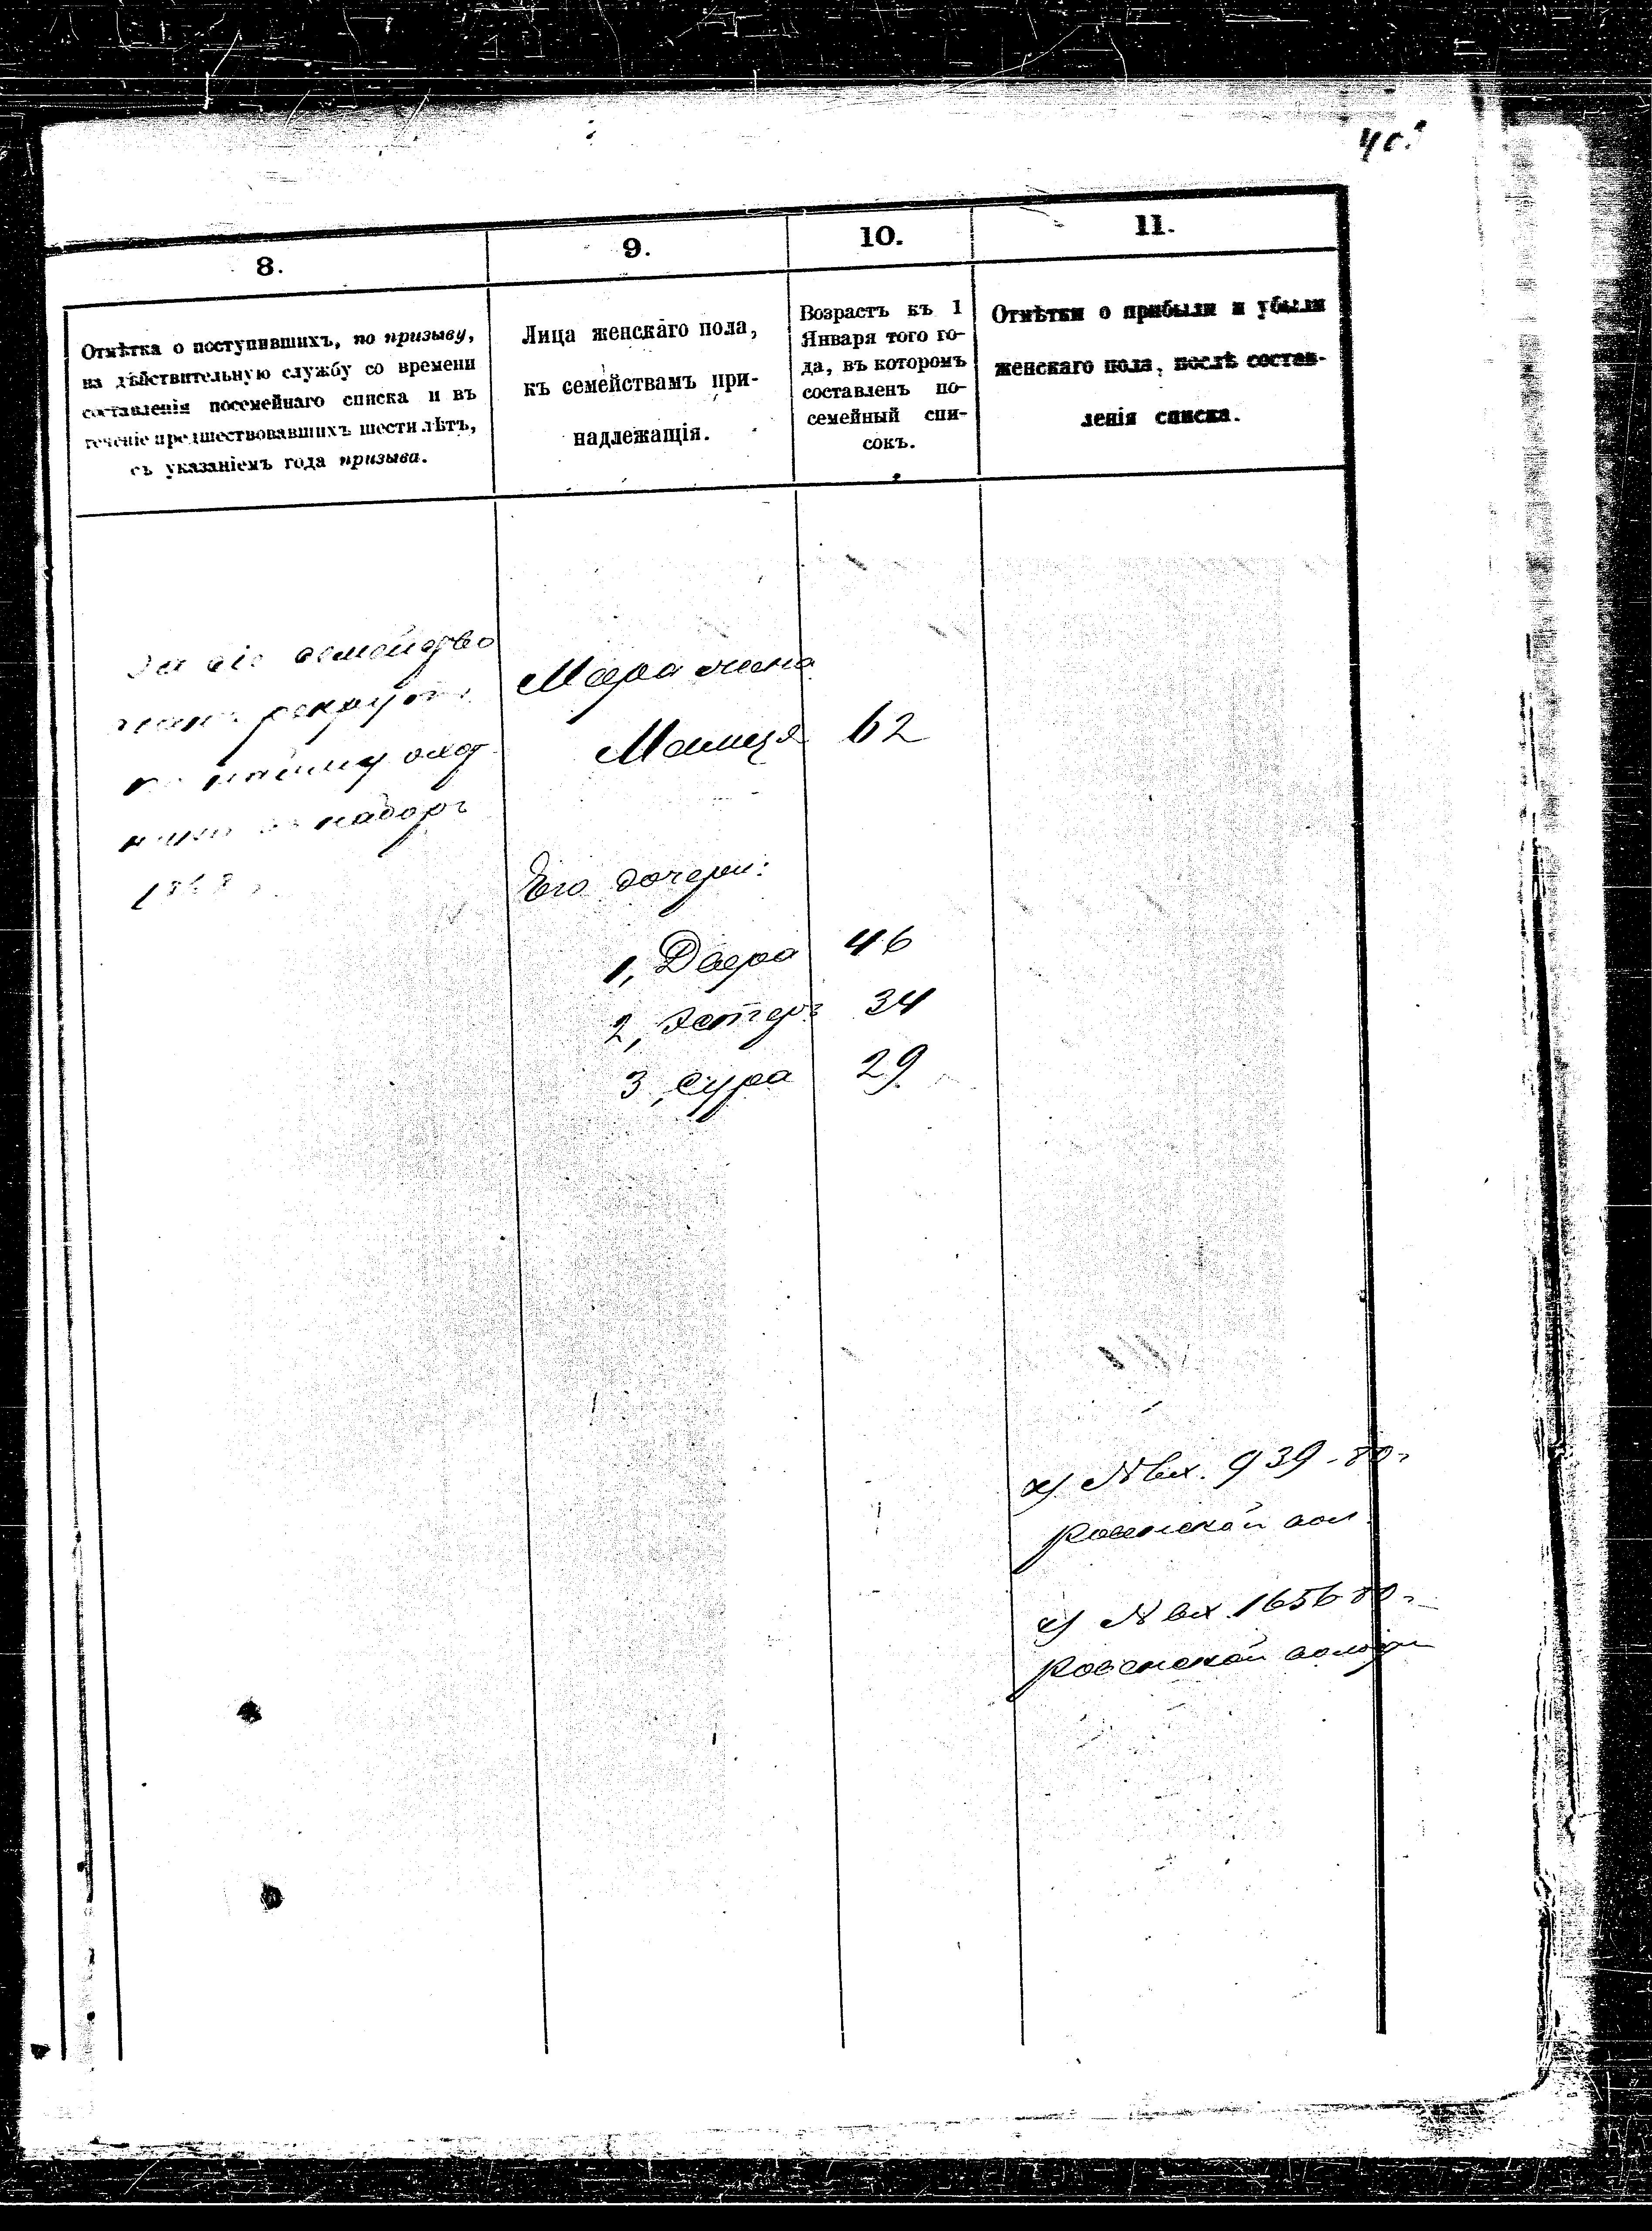 8.
9.
10.
11.
Отмѣтка о поступившихъ, по призыву,
на дѣйствительную службу со времени
составленія посемейнаго списка и въ
теченіе предшествовавшихъ шести лѣтъ,
съ указаніемъ года призыва.
Лица женскаго пола,
къ семействамъ при-
надлежащія.
Возрастъ къ 1
Января того го-
да, въ которомъ
составленъ по-
семейный спи-
сокъ.
Отмѣтки о прибыли и убыли
женскаго пола, послѣ состав-
ленія списка.
За сіе семейство
рекрутъ
по найму охот
наборъ
Мера жена
62
Его дочери:
1, Двера 46
2, Эстеръ 34
3, Сура 29
х) № вх. 939 - 80 г
Ровенской вол.
х) № вх. 1656 80 г
Ровенской